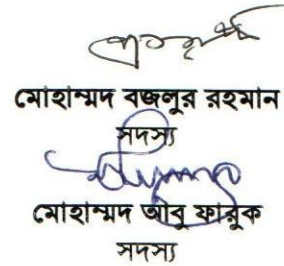 মোহাম্মদ বজলুর রহমান
সদস্য
মোহাম্মদ আবু ফারুক
সদস্য